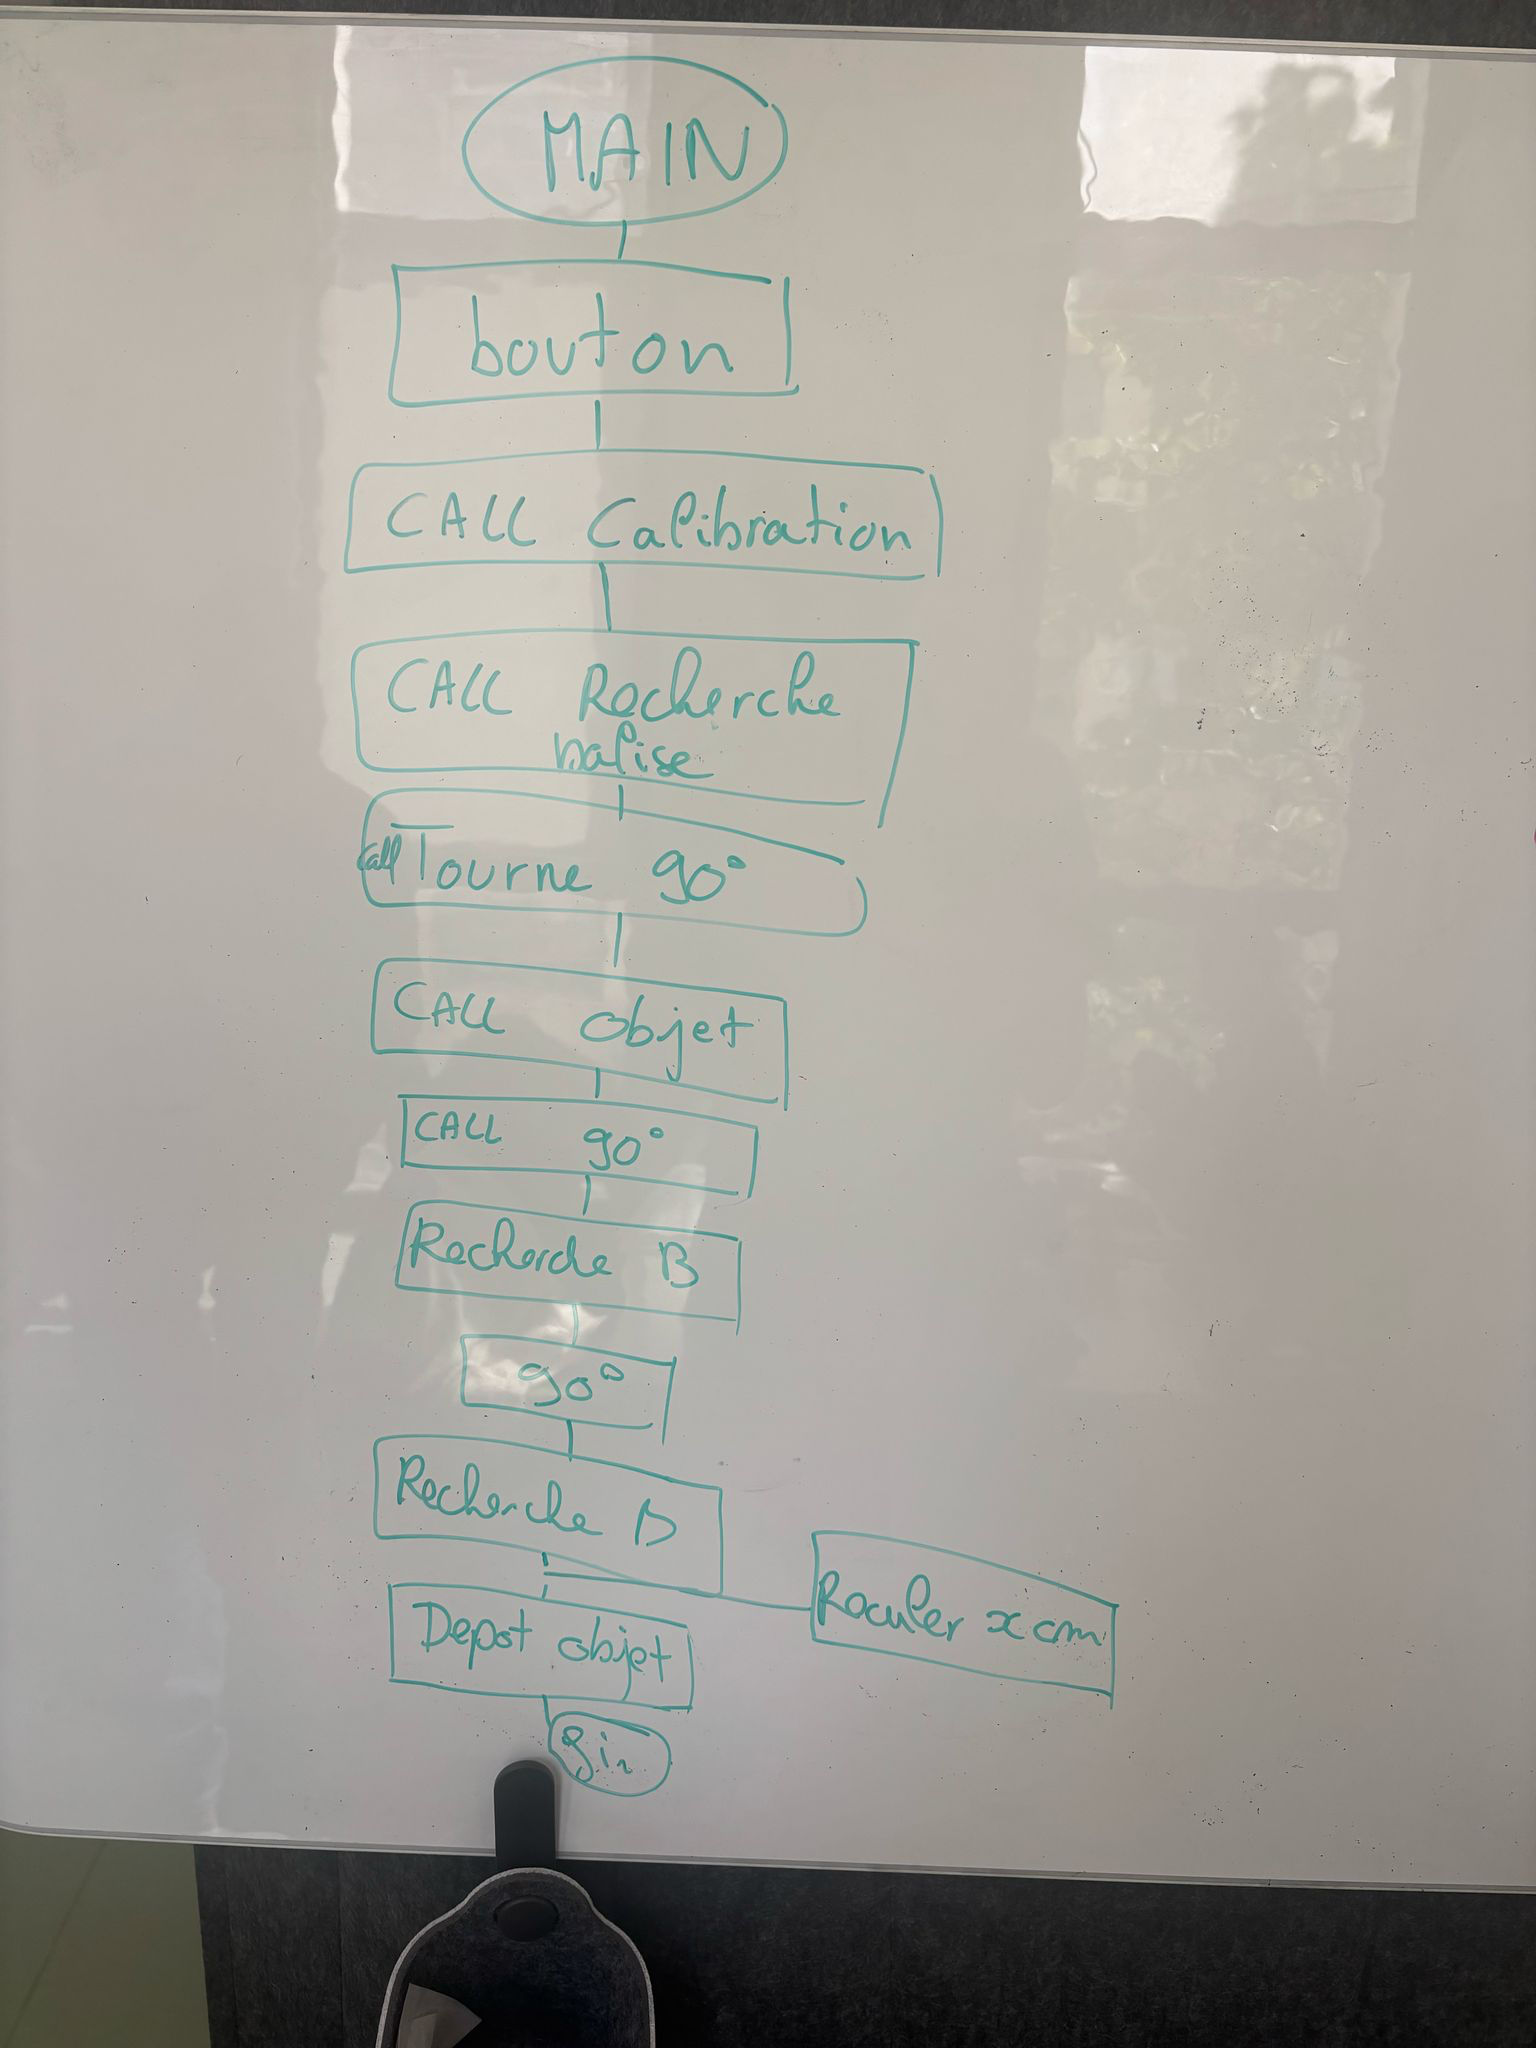 MAIN
bouton
CALL Calibration
CALL Recherche
balise
Call Tourne 90°
CALL objet
CALL 90°
Recherche B
90°
Recherche B
Reculer x cm
Depot objet
fin